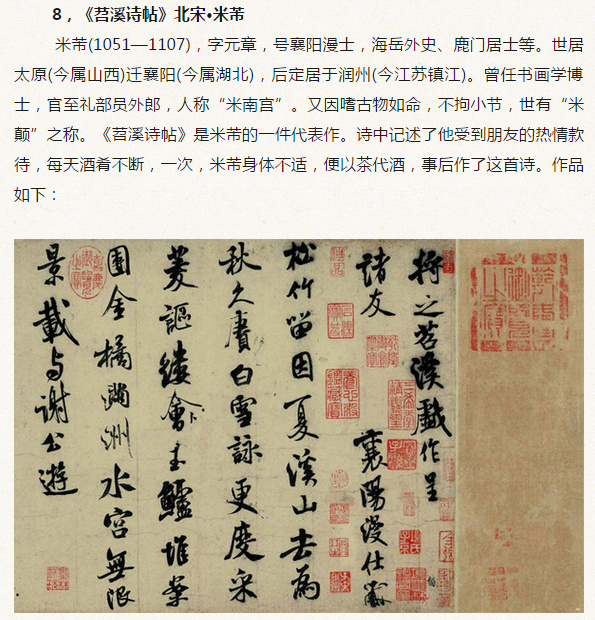 8，《苕溪诗帖》北宋·米芾
米芾(1051—1107)，字元章，号襄阳漫士，海岳外史、鹿门居士等。世居
太原(今属山西)迁襄阳(今属湖北)，后定居于润州(今江苏镇江)。曾任书画学博
士，官至礼部员外郎，人称“米南宫”。又因嗜古物如命，不拘小节，世有“米
颠”之称。《苕溪诗帖》是米芾的一件代表作。诗中记述了他受到朋友的热情款
待，每天酒肴不断，一次，米芾身体不适，便以茶代酒，事后作了这首诗。作品
如下：
將之苕溪戲作呈
諸友
襄陽漫仕黻
松竹留因夏溪山去為
秋久賡白雪詠更度采
菱謳縷會玉鱸堆案
團金橘滿洲水宮無限
景載与謝公遊